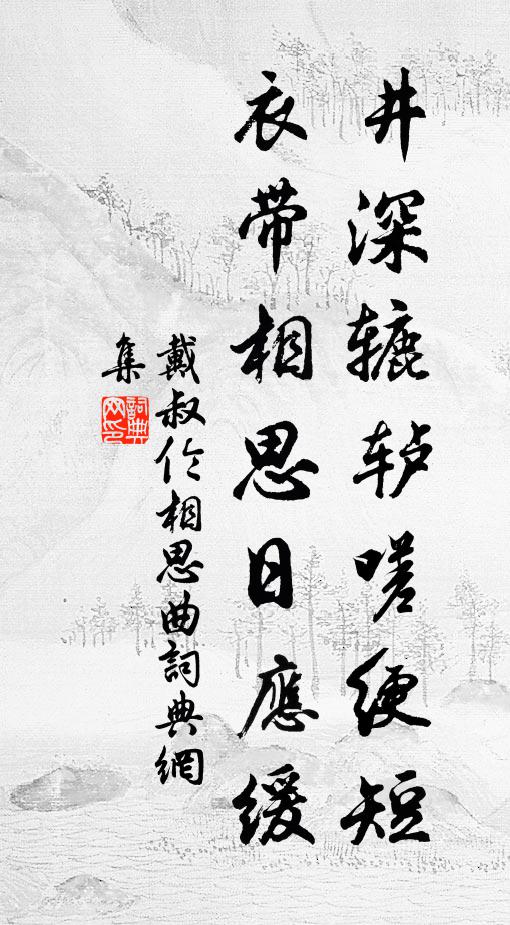 井深辘轳嗟绠短
衣带相思日應缓
戴叔伦相思曲詞典網
集
詞典
网印